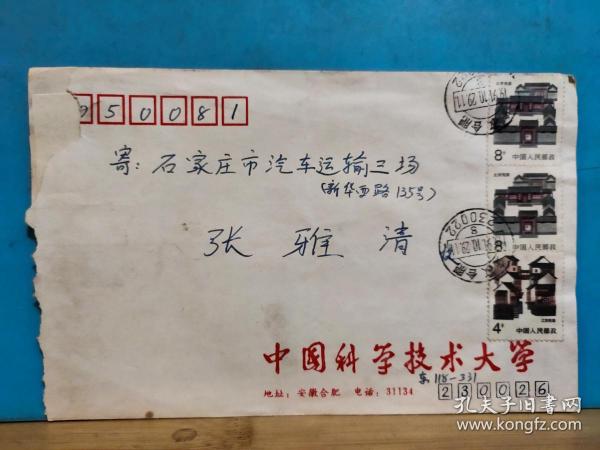 050081
寄：石家庄市汽车运输三场
（新华西路135号）
张雅清
8分
中国人民邮政
8分
中国人民邮政
4分
中国人民邮政
合肥
230022
中国科学技术大学
东118-331
地址：安徽合肥 电话：31134
230026
孔夫子旧书网
www.kongfz.com